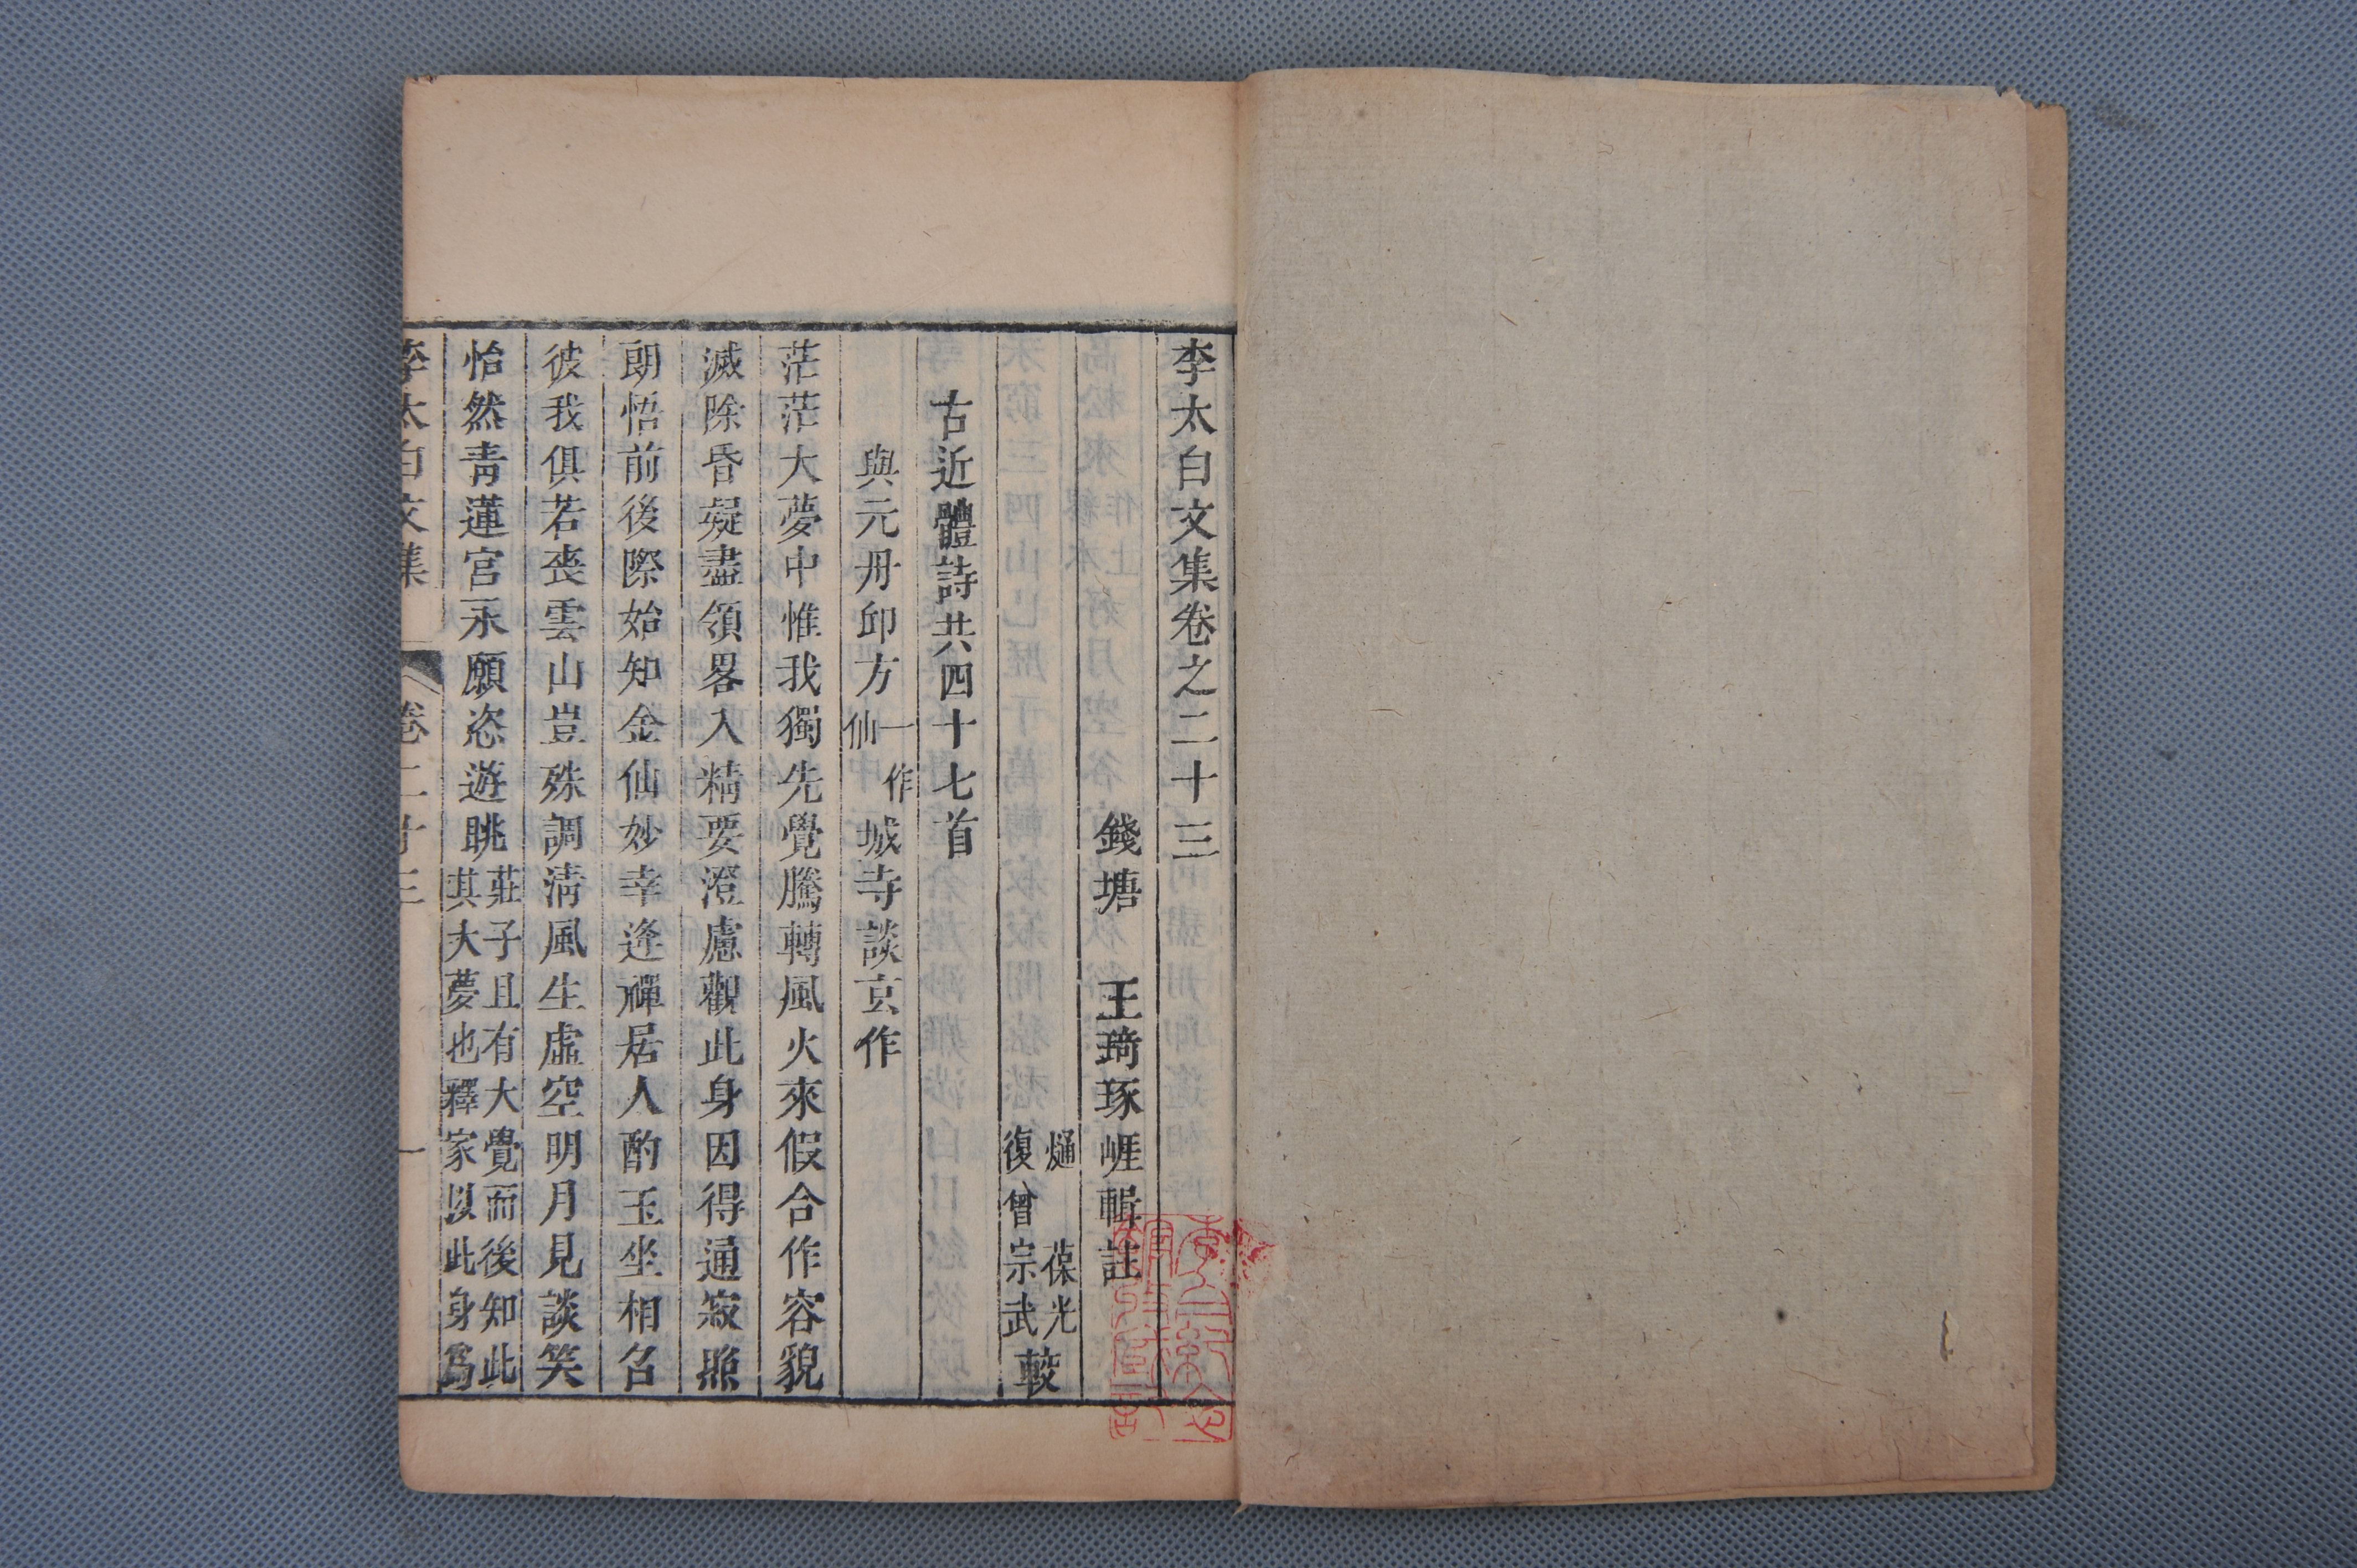 李太白文集卷之二十三
錢塘 王琦琢崕輯註
燧 葆光
復曾宗武
較
古近體詩共四十七首
與元丹邱方一作仙城寺談玄作
茫茫大夢中惟我獨先覺騰轉風火來假合作容貌
滅除昏疑盡領畧入精要澄慮觀此身因得通寂照
朗悟前後際始知金仙妙幸逢禪居人酌玉坐相召
彼我俱若喪雲山豈殊調清風生虛空明月見談笑
怡然青蓮宮永願恣遊眺莊子且有大覺而後知此
其大夢也釋家以此身爲
李太白文集 卷二十三 一